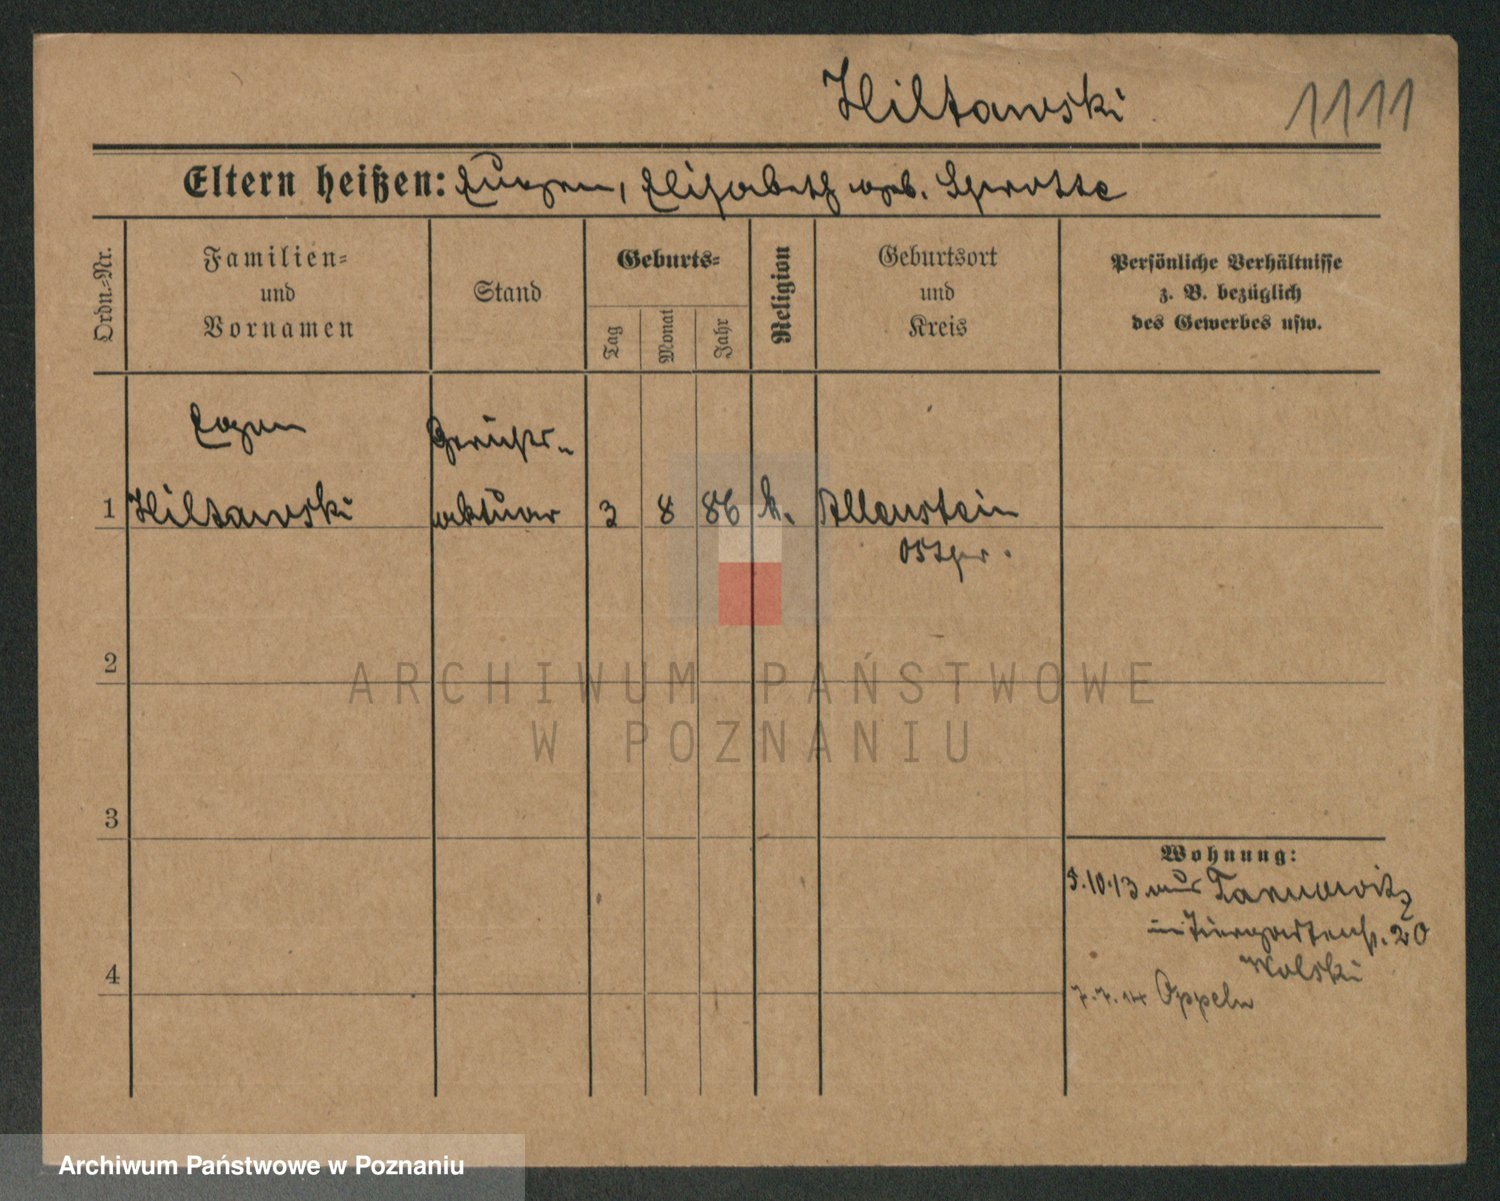 Hiltawski
1111
Eltern heißen: Eugen, Elisabeth geb. Sprotte
Ordn.-Nr.
Familien-
und
Vornamen
Stand
Geburts-
Tag
Monat
Jahr
Religion
Geburtsort
und
Kreis
Persönliche Verhältnisse
z. B. bezüglich
des Gewerbes usw.
Gerichts-
1 Hiltawski aktuar 3 8 86 k. Allenstein
Ostpr.
2
3
4
Wohnung:
5.10.13 aus Tarnowitz
in Tiergartenstr. 20
Wolski
7.7.14 Oppeln
ARCHIWUM PAŃSTWOWE
W POZNANIU
Archiwum Państwowe w Poznaniu